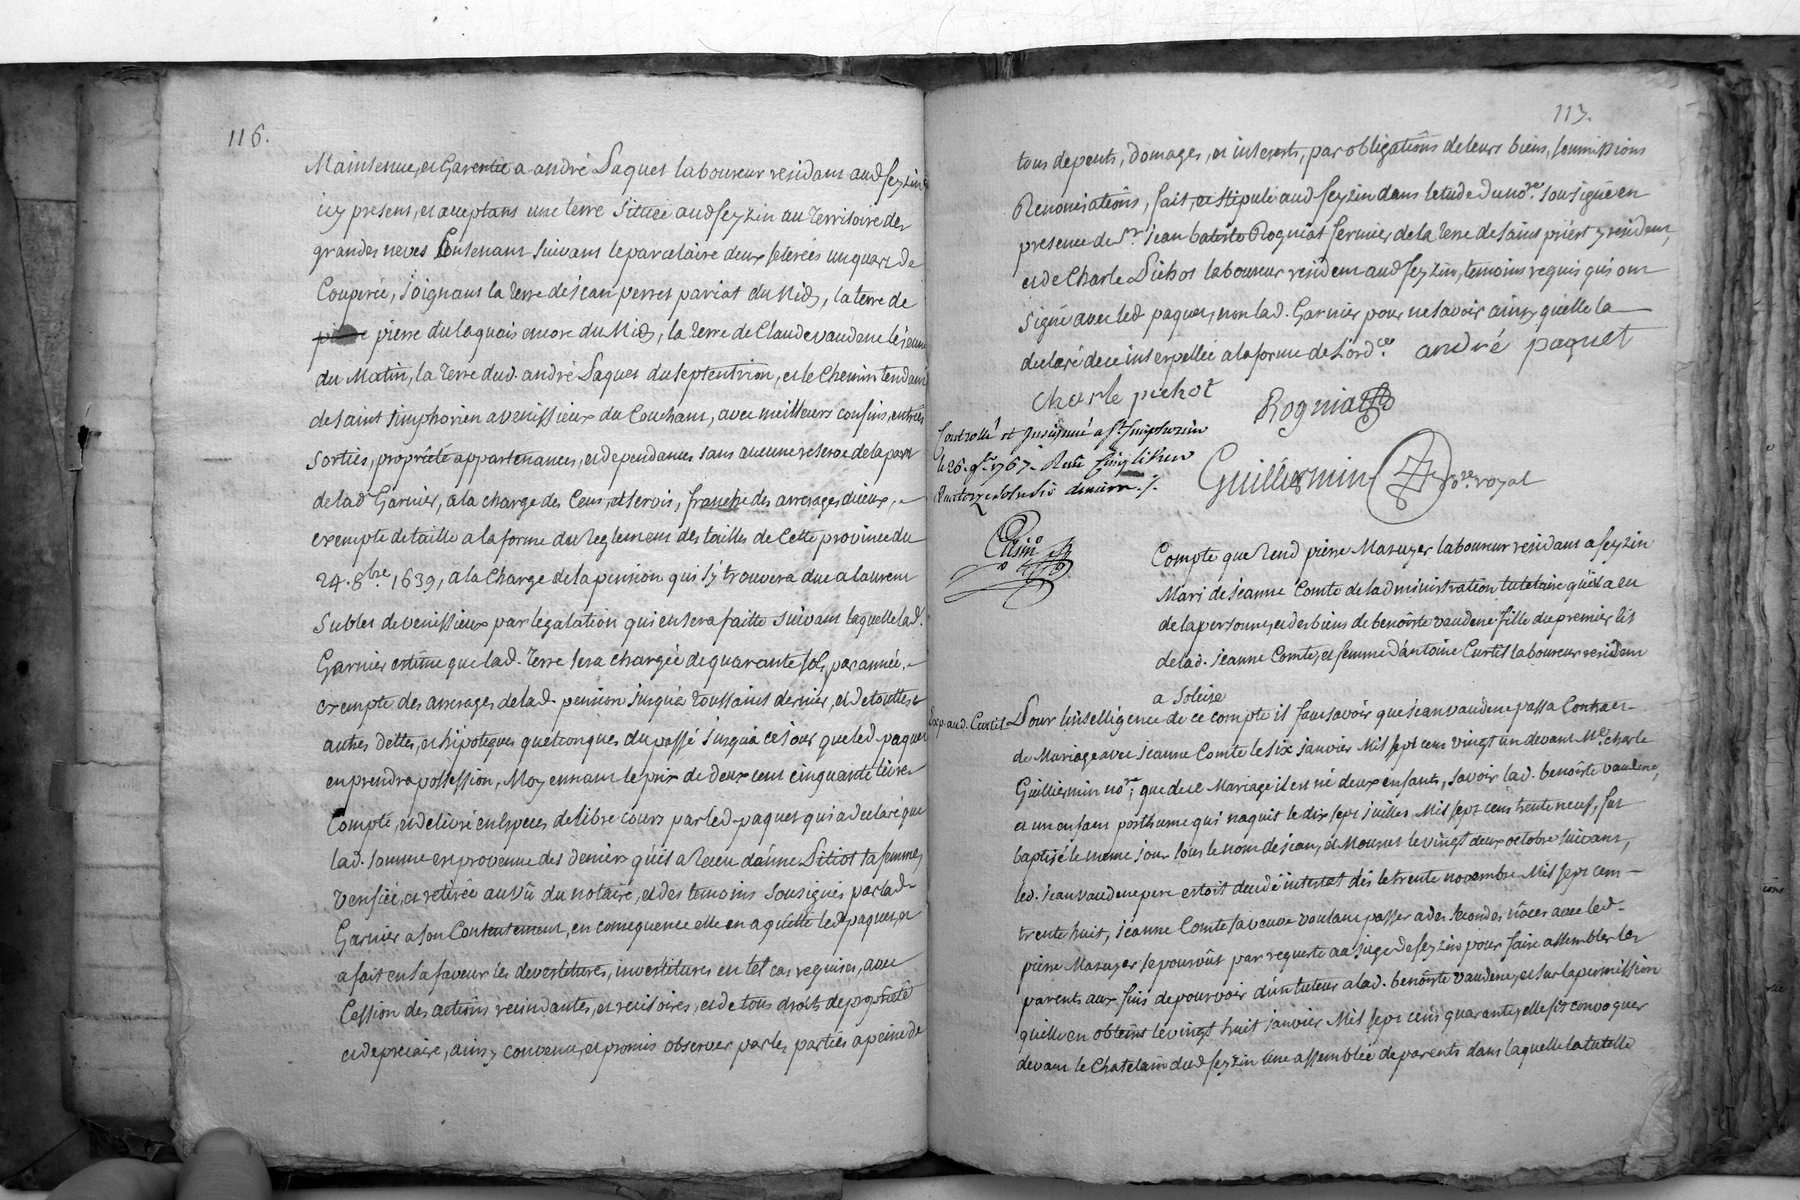 116.
Maintenue, et Garentie a andré Paquet laboureur residant aud seyzin
icy present, et acceptant une terre située aud seyzin au territoire des
grandes neves Contenant suivant le parcelaire deux seterées un quart de
Couperée, joignant la terre de jean perret pariat du Midy, la terre de
pierre du laquais encore du Midy, la terre de Claude vaudene le jeune
du Matin, la terre dud. andré Paquet du septentrion, et le Chemin tendant
de saint simphorien a venissieux du Couchant, avec meilleurs confins, entrées
sorties, propriété appartenances, et dependances sans aucune reserve de la part
de lad Garnier, a la charge des Cens, et servis, franche des arrerages d'iceux,
exempte de taille a la forme du reglement des tailles de Cette province du
24. 8bre 1639, a la Charge de la pension qui s'y trouvera due a laurent
Sublet de venissieux par legalation qui en sera faitte suivant laquelle lad.
Garnier estime que lad. terre sera chargée de quarante sols par année,
exempte des arrerages de lad. pension jusqu'a toussaint dernier, et de touttes
autres dettes, et hipoteques quelconques du passé jusqu'a ce jour que led. paquet
en prendra possession, Moyennant le prix de deux cent cinquante livres
Compté, et delivré en especes de libre cours par led. paquet qui a declaré que
lad. somme en provenue des deniers qu'il a receu d'anne Pitiot sa femme,
verifiée, et retirée au vû du notaire, et des temoins sousignés par lad.
Garnier a son Contentement, en consequence elle en a quitté led paquet, et
a fait en sa faveur les devestitures, investitures en tel cas requises, avec
Cession des actions rescindantes, et rescisoires, et de tous droits de proprieté
et de precaire, ainsy convenu, et promis observer par les parties a peine de
117.
tous depents, domages, et interests, par obligations de leurs biens, soumissions
Renonciations, fait, et stipulé aud seyzin dans l'etude du nore. sousigné en
presence de Sr. jean batiste Rogniat fermier de la terre de saint priést y resident,
et de Charle Pichot laboureur resident aud seyzin, temoins requis qui ont
signé avec led paquet, non lad. Garnier pour ne savoir ainsy qu'elle la
declaré de ce interpellée a la forme de l'ordce. andré paquet
charle pichot Rogniat
Controllé et Insinué a St. simphorien
le 26. 9bre 1767. Reçu
Guilliermin nore royal
Compte que rend pierre Mazuyer laboureur residant a seyzin
Mari de jeanne Comte de l'administration tutelaire qu'il a eu
de la personne, et des biens de benoiste vaudene fille du premier lit
de lad. jeanne Comte, et femme d'antoine Curtil laboureur resident
a Soleize
Exp. aud. Curtil
Pour l'intelligence de ce compte il faut savoir que jean vaudene passa Contract
de Mariage avec jeanne Comte le six janvier Mil sept cent vingt un devant Me. charle
Guilliermin nore; que de ce Mariage il est né deux enfants, savoir lad. benoiste vaudene,
et un enfant posthume qui naquit le dix sept juillet Mil sept cent trente neuf, fut
baptisé le meme jour sous le nom de jean, et Mourut le vingt deux octobre suivant,
led. jean vaudene pere etoit decedé intestat dès le trente novembre Mil sept cent
trente huit, jeanne Comte sa veuve voulant passer a des secondes nôces avec led.
pierre Mazuyer se pourvût par requeste au juge de seyzin pour faire assembler les
parents aux fins de pourvoir d'un tuteur a lad. benoiste vaudene, et sur la permission
qu'elle en obtint le vingt huit janvier Mil sept cent quarante, elle fit convoquer
devant le Chatelain dud seyzin une assemblée de parents dans laquelle la tutelle